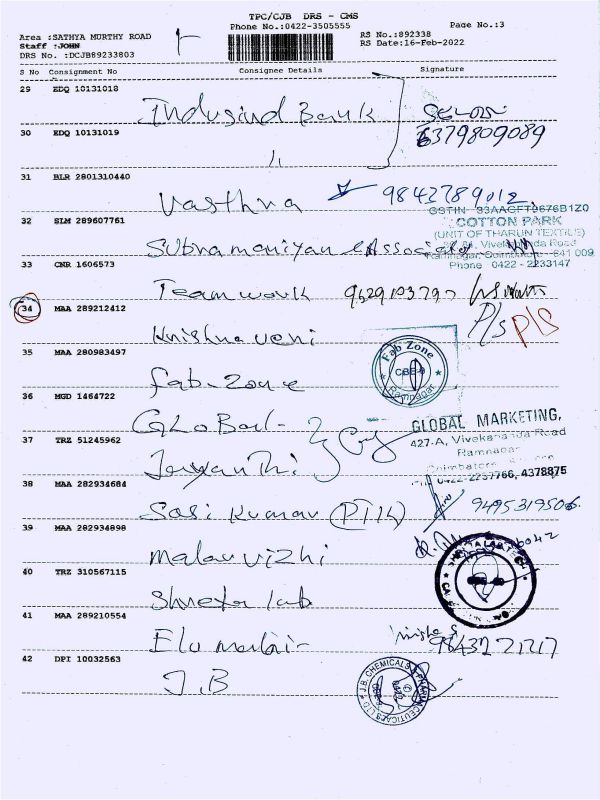 TPC/CJB DRS - CMS
Phone No.:0422-3505555
Page No.:3
Area :SATHYA MURTHY ROAD
RS No.:892338
Staff :JOHN
RS Date:16-Feb-2022
DRS No. :DCJB89233803
S No Consignment No Consignee Details Signature
29 EDQ 10131018
Indusind Bank
6379809089
30 EDQ 10131019
"
31 BLR 2801310440
Vasthra 9843789012
GSTIN 33AACFT9676B1Z0
COTTON PARK
(UNIT OF THARUN TEXTILE)
32 SLM 289607761
Subramaniyan & Associate
Vivekananda Road
Ramnagar, Coimbatore - 641 009
Phone 0422 - 2233147
33 CNR 1606573
Team work
34 MAA 289212412
P/s P/S
Krishnaveni
35 MAA 280983497
Fab Zone
CBE-9
Ramnagar
Fab-Zone
36 MGD 1464722
Global -
GLOBAL MARKETING,
427-A, Vivekananda Road
Ramnagar
Coimbatore
Ph: 0422-2237766, 4378875
37 TRZ 51245962
Jayanthi
38 MAA 282934684
Sasi Kumar (PTI)
9495319506
39 MAA 282934898
Malarvizhi
40 TRZ 310567115
Shreya lab
41 MAA 289210554
Elumalai -
9843221217
42 DPI 10032563
J.B
J.B. CHEMICALS & PHARMACEUTICALS LTD